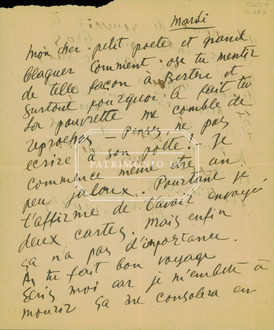 Mardi
mon cher petit poete et grand
blagueur comment ose tu mentir
de telle façon à Berthe et
surtout pourquoi l'a fait tu
La pauvrette me comble de
reproches. Pensez ne pas
ecrire à son poête! Je
commence même être un
peu jaloux. Pourtant je
t'affirme de t'avoir envoyé
deux cartes. Mais enfin
ça n'a pas d'importance.
As tu fait bon voyage
Ecris moi car je m'embête à
mourir ça me consolera en
PATRIMONIO